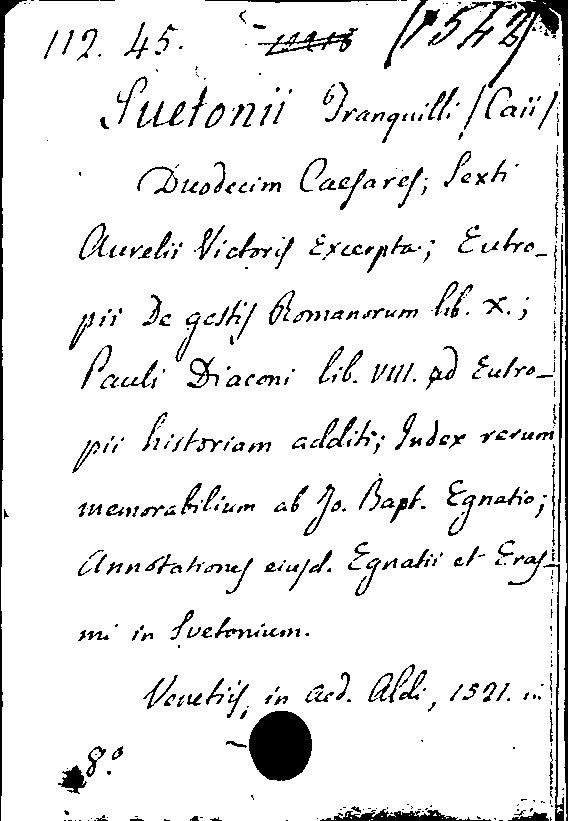 112. 45. (1542)
Suetonii Tranquilli (Caii)
Duodecim Caesares; Sexti
Aurelii Victoris Excerpta; Eutro-
pii De gestis Romanorum lib. X.;
Pauli Diaconi lib. VIII. ad Eutro-
pii historiam additi; Index rerum
memorabilium ab Jo. Bapt. Egnatio;
Annotationes eiusd. Egnatii et Eras-
mi in Svetonium.
Venetiis, in aed. Aldi, 1521. in
8.º